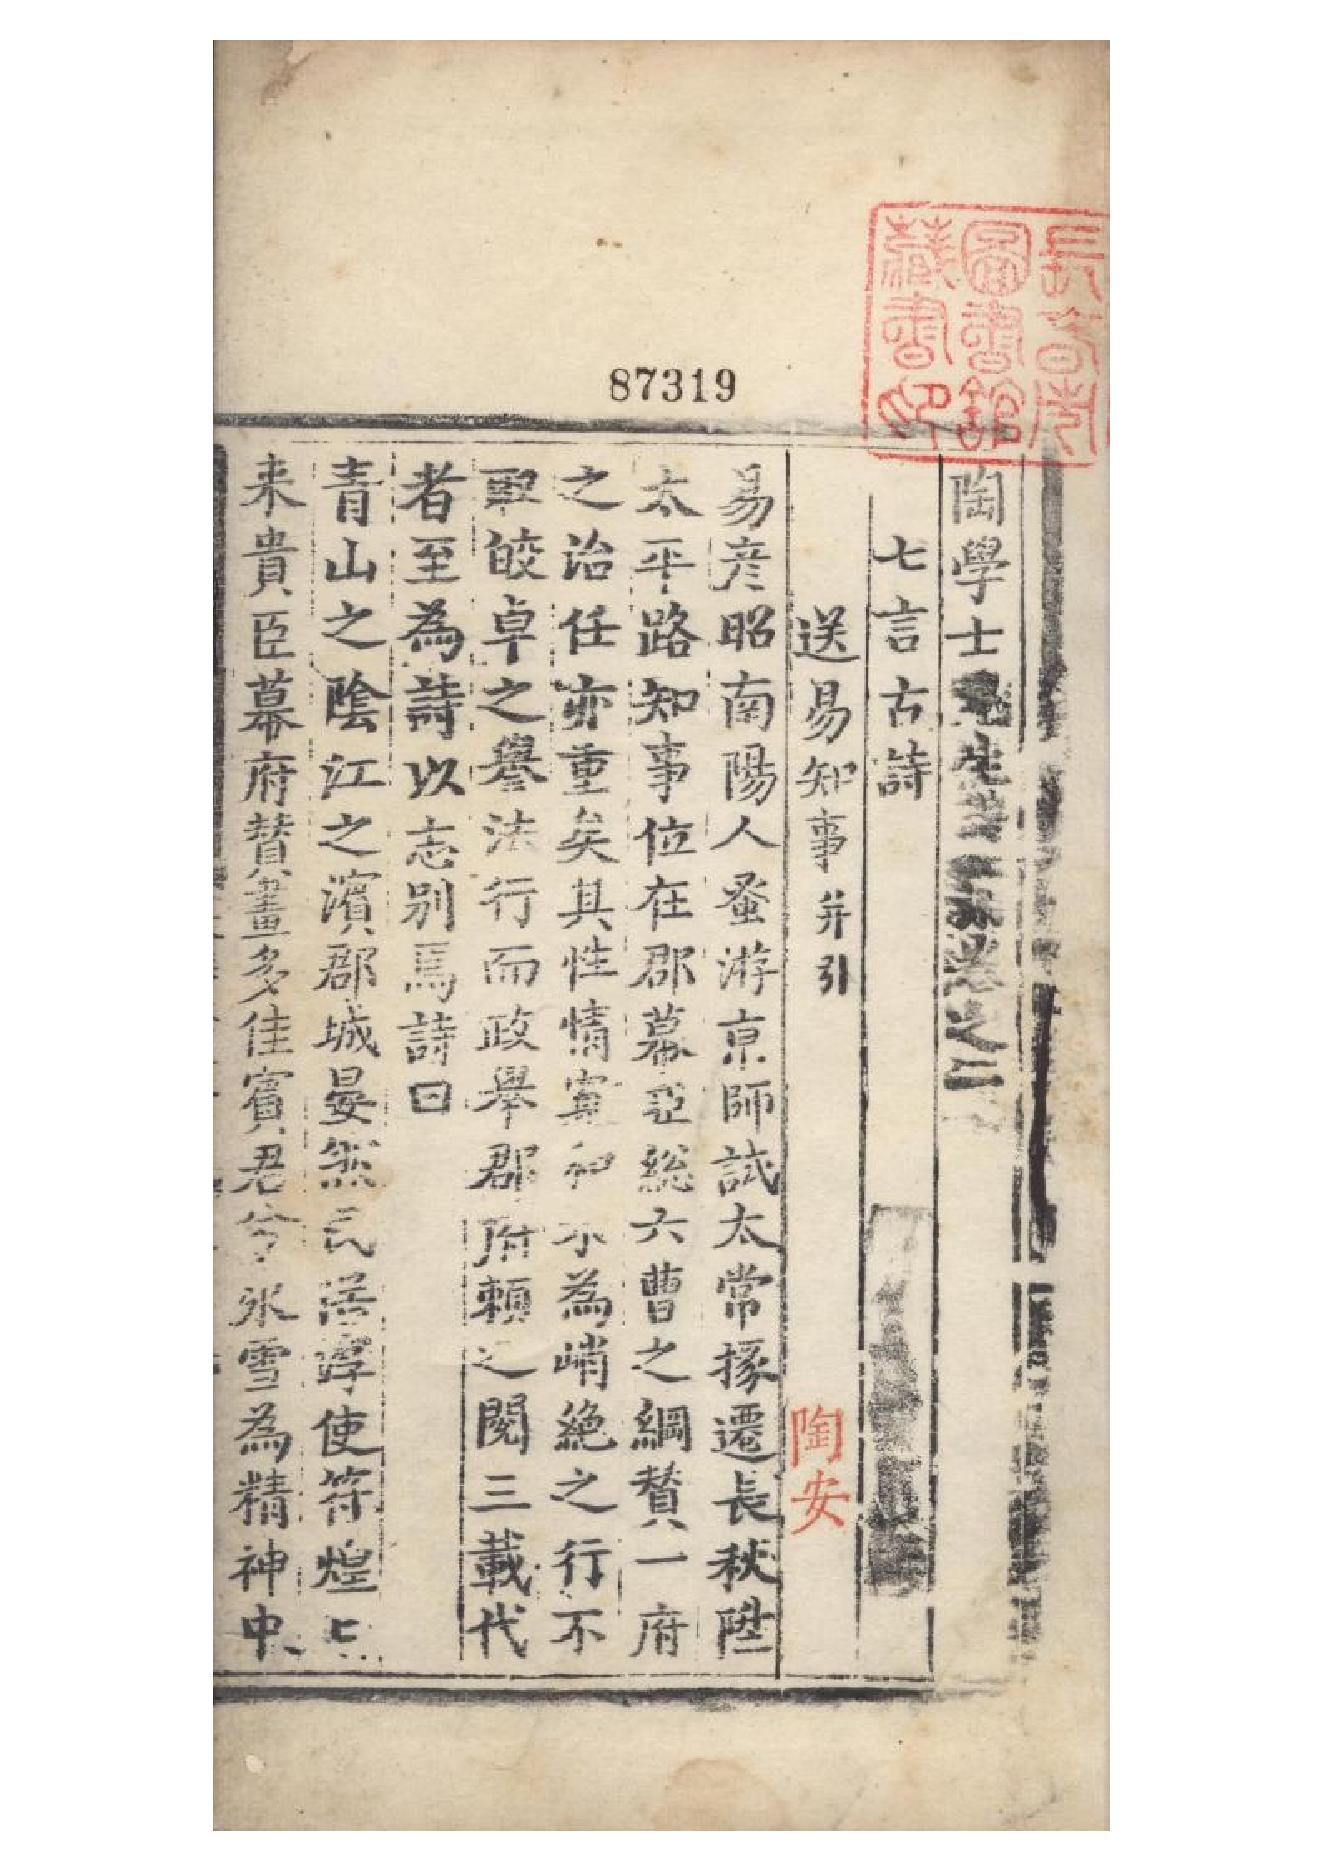 長春市
圖書館
藏書印
87319
陶學士先生文集卷之二
七言古詩
送易知事并引
陶安
易彦昭南陽人蚤游京師試太常掾遷長秋陞
太平路知事位在郡幕亞總六曹之綱賛一府
之治任亦重矣其性情寬和不為峭絶之行不
取皎卓之譽法行而政舉郡府頼之閱三載代
者至為詩以志别焉詩曰
青山之陰江之濱郡城晏然民俗淳使符煌七
来貴臣幕府賛畫多佳賓君今氷雪為精神中